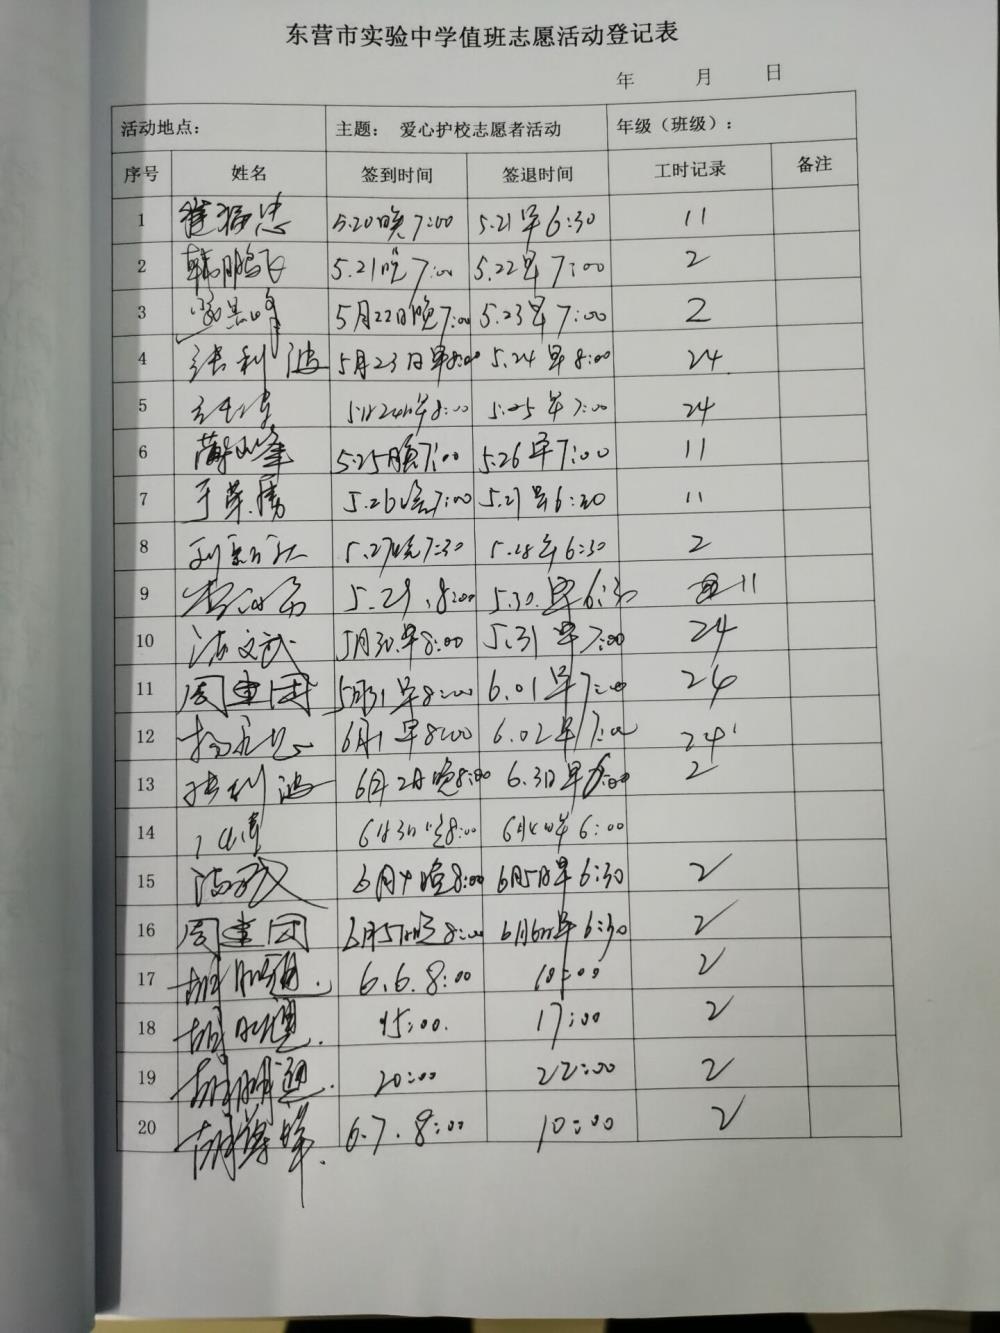 东营市实验中学值班志愿活动登记表
年 月 日
活动地点： 主题： 爱心护校志愿者活动 年级（班级）：
序号 姓名 签到时间 签退时间 工时记录 备注
1 崔福忠 5.20晚7:00 5.21早6:30 11
2 韩鹏飞 5.21晚7:00 5.22早7:00 2
3 5月22日晚7:00 5.23早7:00 2
4 张利波 5月23日早8:00 5.24早8:00 24
5 8:00 5.25早7:00 24
6 薛峰 5.25晚7:00 5.26早7:00 11
7 于荣 5.26晚7:00 5.27早6:30 11
8 5.27晚7:30 5.28早6:30 2
9 5.29.8:00 5.30.早6:30 11
10 文武 5月30.早8:00 5.31早7:00 24
11 周重团 5月31早8:00 6.01早7:00 24
12 杨 6月1早8:00 6.02早7:00 24
13 张利波 6月2日晚8:00 6.3日早:00 2
14 6月3日晚8:00 6月4日早6:00
15 6月4晚8:00 6月5日早6:30 2
16 周重团 6月5日晚8:00 6月6日早6:30 2
17 6.6.8:00 10:00 2
18 15:00. 17:00 2
19 20:00 22:00 2
20 6.7.8:00 10:00 2